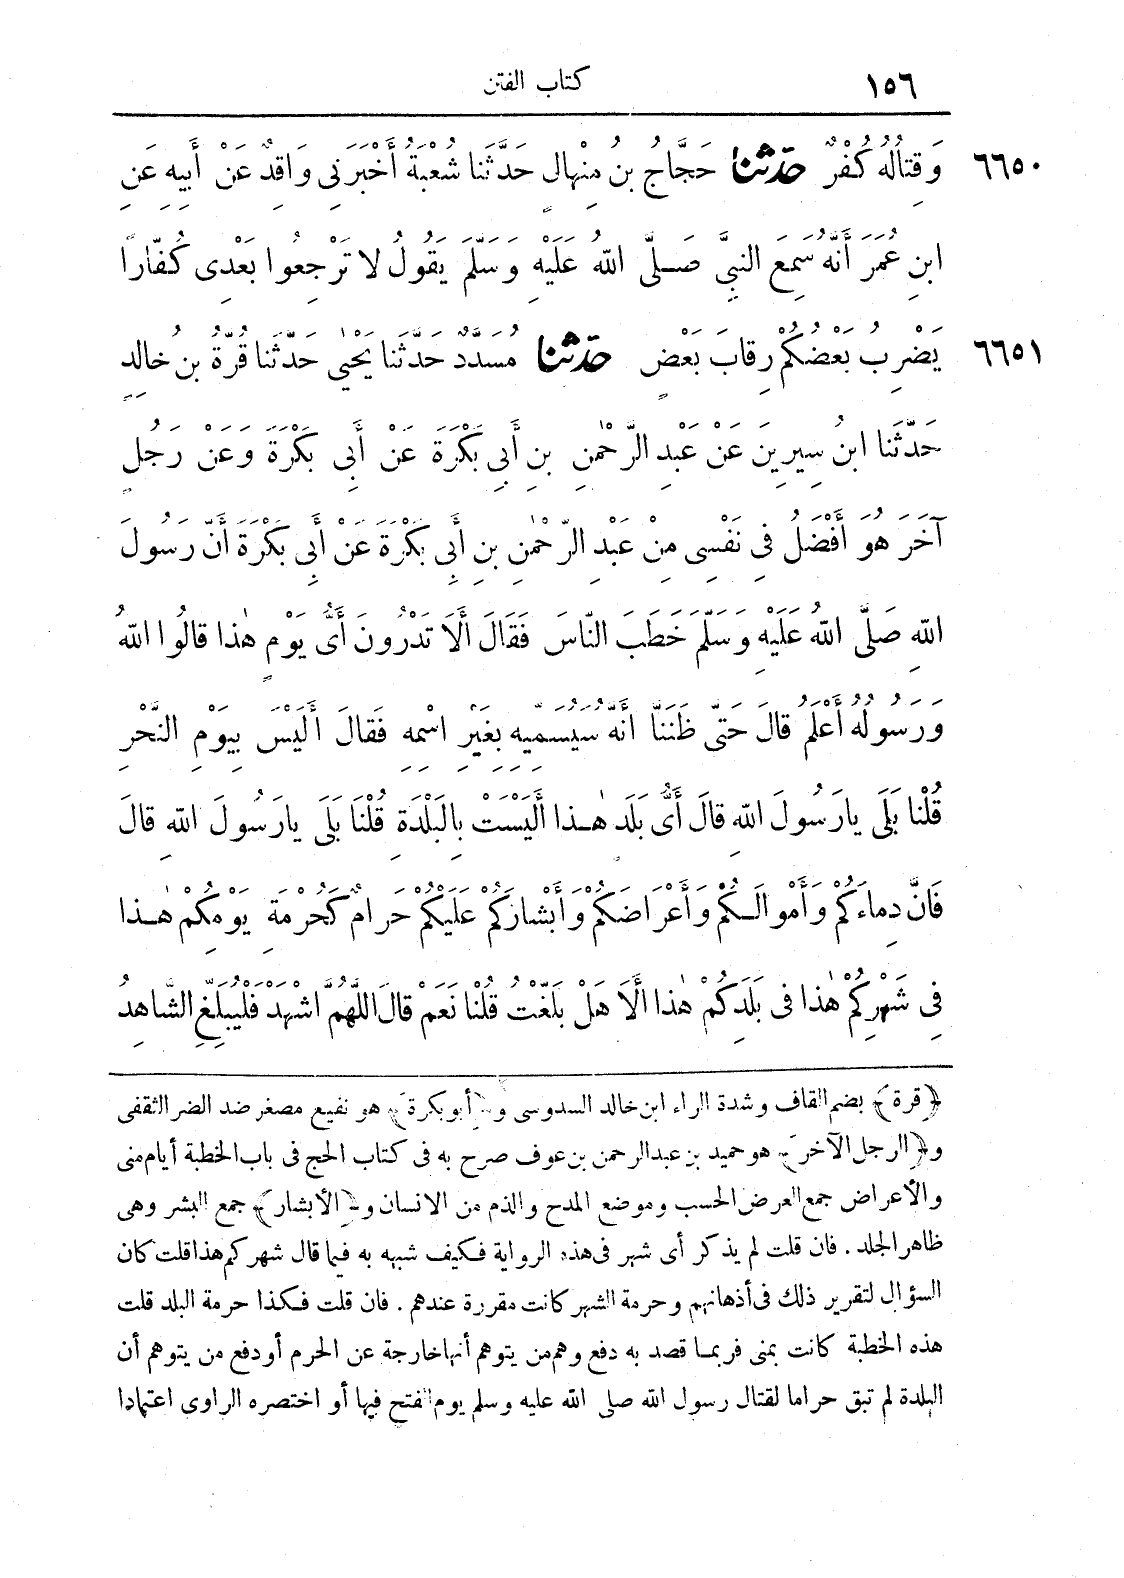 ١٥٦ كتاب الفتن
٦٦٥٠ وَقِتالُهُ كُفْرٌ حدثنا حَجَّاجُ بنُ مِنْهالٍ حَدَّثَنا شُعْبَةُ أَخْبَرَنِى وَاقِدٌ عَنْ أَبِيهِ عَنِ
ابنِ عُمَرَ أَنَّهُ سَمِعَ النبىَّ صَلَّى اللّٰهُ عَلَيْهِ وَسَلَّمَ يَقُولُ لا تَرْجِعُوا بَعْدِى كُفَّارًا
٦٦٥١ يَضْرِبُ بَعْضُكُمْ رِقابَ بَعْضٍ حدثنا مُسَدَّدٌ حَدَّثَنا يَحْيٰى حَدَّثَنا قُرَّةُ بنُ خالِدٍ
حَدَّثَنا ابنُ سِيرِينَ عَنْ عَبْدِ الرَّحْمٰنِ بنِ أَبِى بَكْرَةَ عَنْ أَبِى بَكْرَةَ وَعَنْ رَجُلٍ
آخَرَ هُوَ أَفْضَلُ فِى نَفْسِى مِنْ عَبْدِ الرَّحْمٰنِ بنِ أَبِى بَكْرَةَ عَنْ أَبِى بَكْرَةَ أَنَّ رَسُولَ
اللّٰهِ صَلَّى اللّٰهُ عَلَيْهِ وَسَلَّمَ خَطَبَ النَّاسَ فَقَالَ أَلَا تَدْرُونَ أَىُّ يَوْمٍ هٰذا قالُوا اللّٰهُ
وَرَسُولُهُ أَعْلَمُ قالَ حَتَّى ظَنَنَّا أَنَّهُ سَيُسَمِّيهِ بِغَيْرِ اسْمِهِ فَقالَ أَلَيْسَ بِيَوْمِ النَّحْرِ
قُلْنا بَلَى يارَسُولَ اللّٰهِ قالَ أَىُّ بَلَدٍ هٰذا أَلَيْسَتْ بِالبَلْدَةِ قُلْنَا بَلَى يارَسُولَ اللّٰهِ قالَ
فَانَّ دِماءَكُمْ وَأَمْوالَكُمْ وَأَعْرَاضَكُمْ وَأَبْشارَكُمْ عَلَيْكُمْ حَرامٌ كَحُرْمَةِ يَوْمِكُمْ هٰذا
فِى شَهْرِكُمْ هٰذا فى بَلَدِكُمْ هٰذا أَلَا هَلْ بَلَّغْتُ قُلْنا نَعَمْ قالَ اللَّهُمَّ اشْهَدْ فَلْيُبَلِّغِ الشَّاهِدُ
﴿قرة﴾ بضم القاف وشدة الراء ابن خالد السدوسى و﴿أبو بكرة﴾ هو نفيع مصغر ضد الضر الثقفى
و﴿الرجل الآخر﴾ هو حميد بن عبد الرحمن بن عوف صرح به فى كتاب الحج فى باب الخطبة أيام منى
والأعراض جمع العرض الحسب وموضع المدح والذم من الانسان و﴿الأبشار﴾ جمع البشر وهى
ظاهر الجلد . فان قلت لم يذكر أى شهر فى هذه الرواية فكيف شبهه به فيما قال شهركم هذا قلت كان
السؤال لتقرير ذلك فى أذهانهم وحرمة الشهر كانت مقررة عندهم . فان قلت فكذا حرمة البلد قلت
هذه الخطبة كانت بمنى فربما قصد به دفع وهم من يتوهم أنها خارجة عن الحرم أو دفع من يتوهم أن
البلدة لم تبق حراما لقتال رسول الله صلى الله عليه وسلم يوم الفتح فيها أو اختصره الراوى اعتمادا